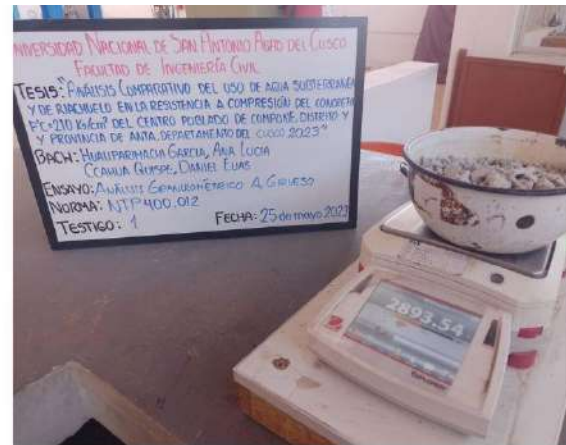 UNIVERSIDAD NACIONAL DE SAN ANTONIO ABAD DEL CUSCO
FACULTAD DE INGENIERÍA CIVIL
TESIS: "ANÁLISIS COMPARATIVO DEL USO DE AGUA SUBTERRANEA
Y DE RIACHUELO EN LA RESISTENCIA A COMPRESIÓN DEL CONCRETO
F'C=210 Kg/cm² DEL CENTRO POBLADO DE COMPONE, DISTRITO Y
Y PROVINCIA DE ANTA, DEPARTAMENTO DEL CUSCO 2023"
BACH: HUALLPARIMACHI GARCIA, ANA LUCIA
CCAHUA QUISPE, DANIEL ELIAS
ENSAYO: ANÁLISIS GRANULOMÉTRICO A. GRUESO
NORMA: NTP 400.012
TESTIGO: 1 FECHA: 25 de mayo 2023
2893.54